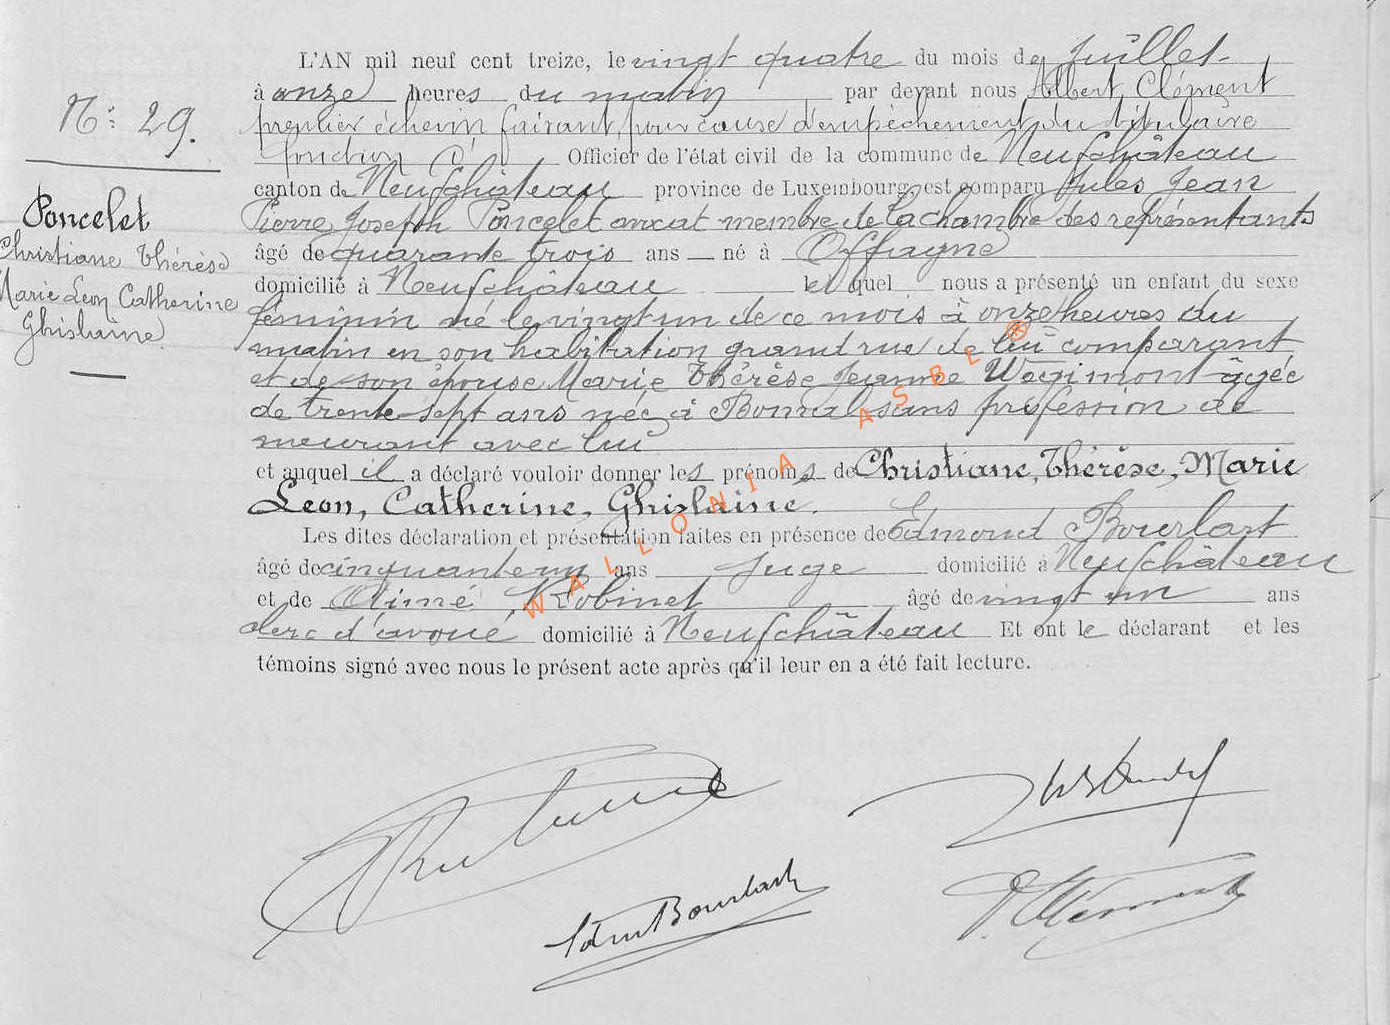 L'AN mil neuf cent treize, le vingt quatre du mois de Juillet
à onze heures du matin par devant nous Albert Clément
N° 29.
premier échevin faisant, pour cause d'empêchement du titulaire
fonction d' Officier de l'état civil de la commune de Neufchâteau
canton de Neufchâteau province de Luxembourg, est comparu Jules Jean
Poncelet
Pierre Joseph Poncelet avocat membre de la chambre des représentants
Christiane Thérèse
âgé de quarante trois ans né à Offagne
domicilié à Neufchâteau lequel nous a présenté un enfant du sexe
Marie Leon Catherine
féminin né le vingt un de ce mois à onze heures du
Ghislaine
matin en son habitation grand rue de lui comparant
et de son épouse Marie Thérèse Jeanne Wégimont âgée
de trente sept ans née à Bonnal sans profession de
meurant avec lui
et auquel il a déclaré vouloir donner les prénoms de Christiane, Thérèse, Marie
Leon, Catherine, Ghislaine.
Les dites déclaration et présentation faites en présence de Edmond Bourlart
âgé de cinquante un ans Juge domicilié à Neufchâteau
et de Aimé Robinet âgé de vingt un ans
clerc d'avoué domicilié à Neufchâteau Et ont le déclarant et les
témoins signé avec nous le présent acte après qu'il leur en a été fait lecture.
WALLONIA ASBL ®
Edm Bourlart